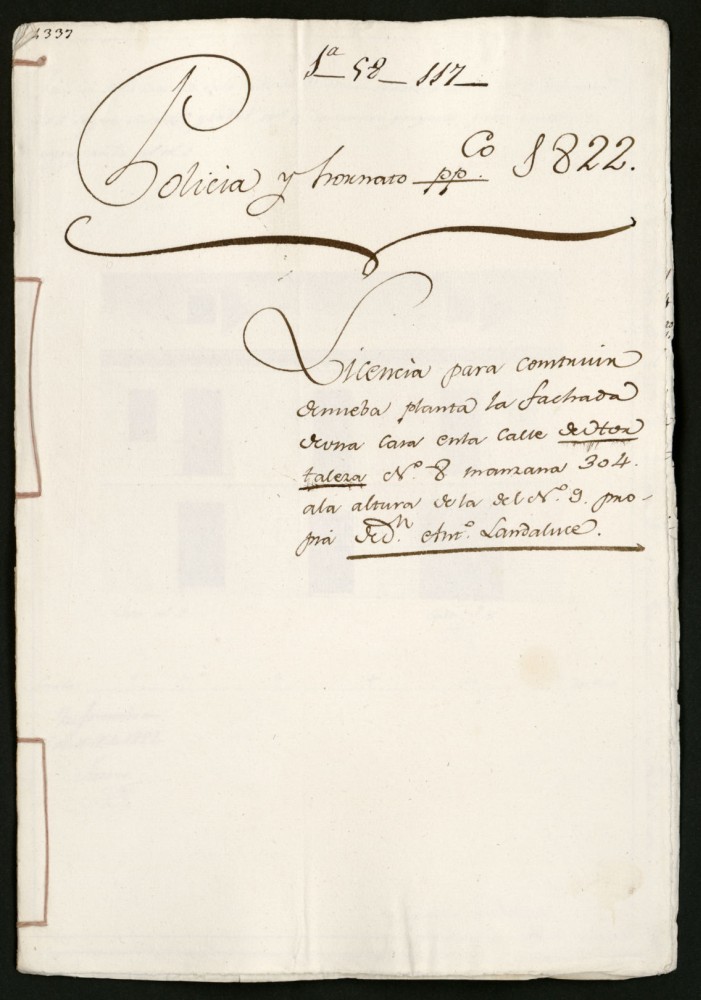 4337
1ª 58 117
Policia y hornato pp.Co 1822.
Licencia para construir
denueba planta la fachada
deuna Casa enla Calle de For
taleza Nº. 8 manzana 304.
ala altura de la del Nº. 9. pro-
pia de Dn. Antº. Landaluce.